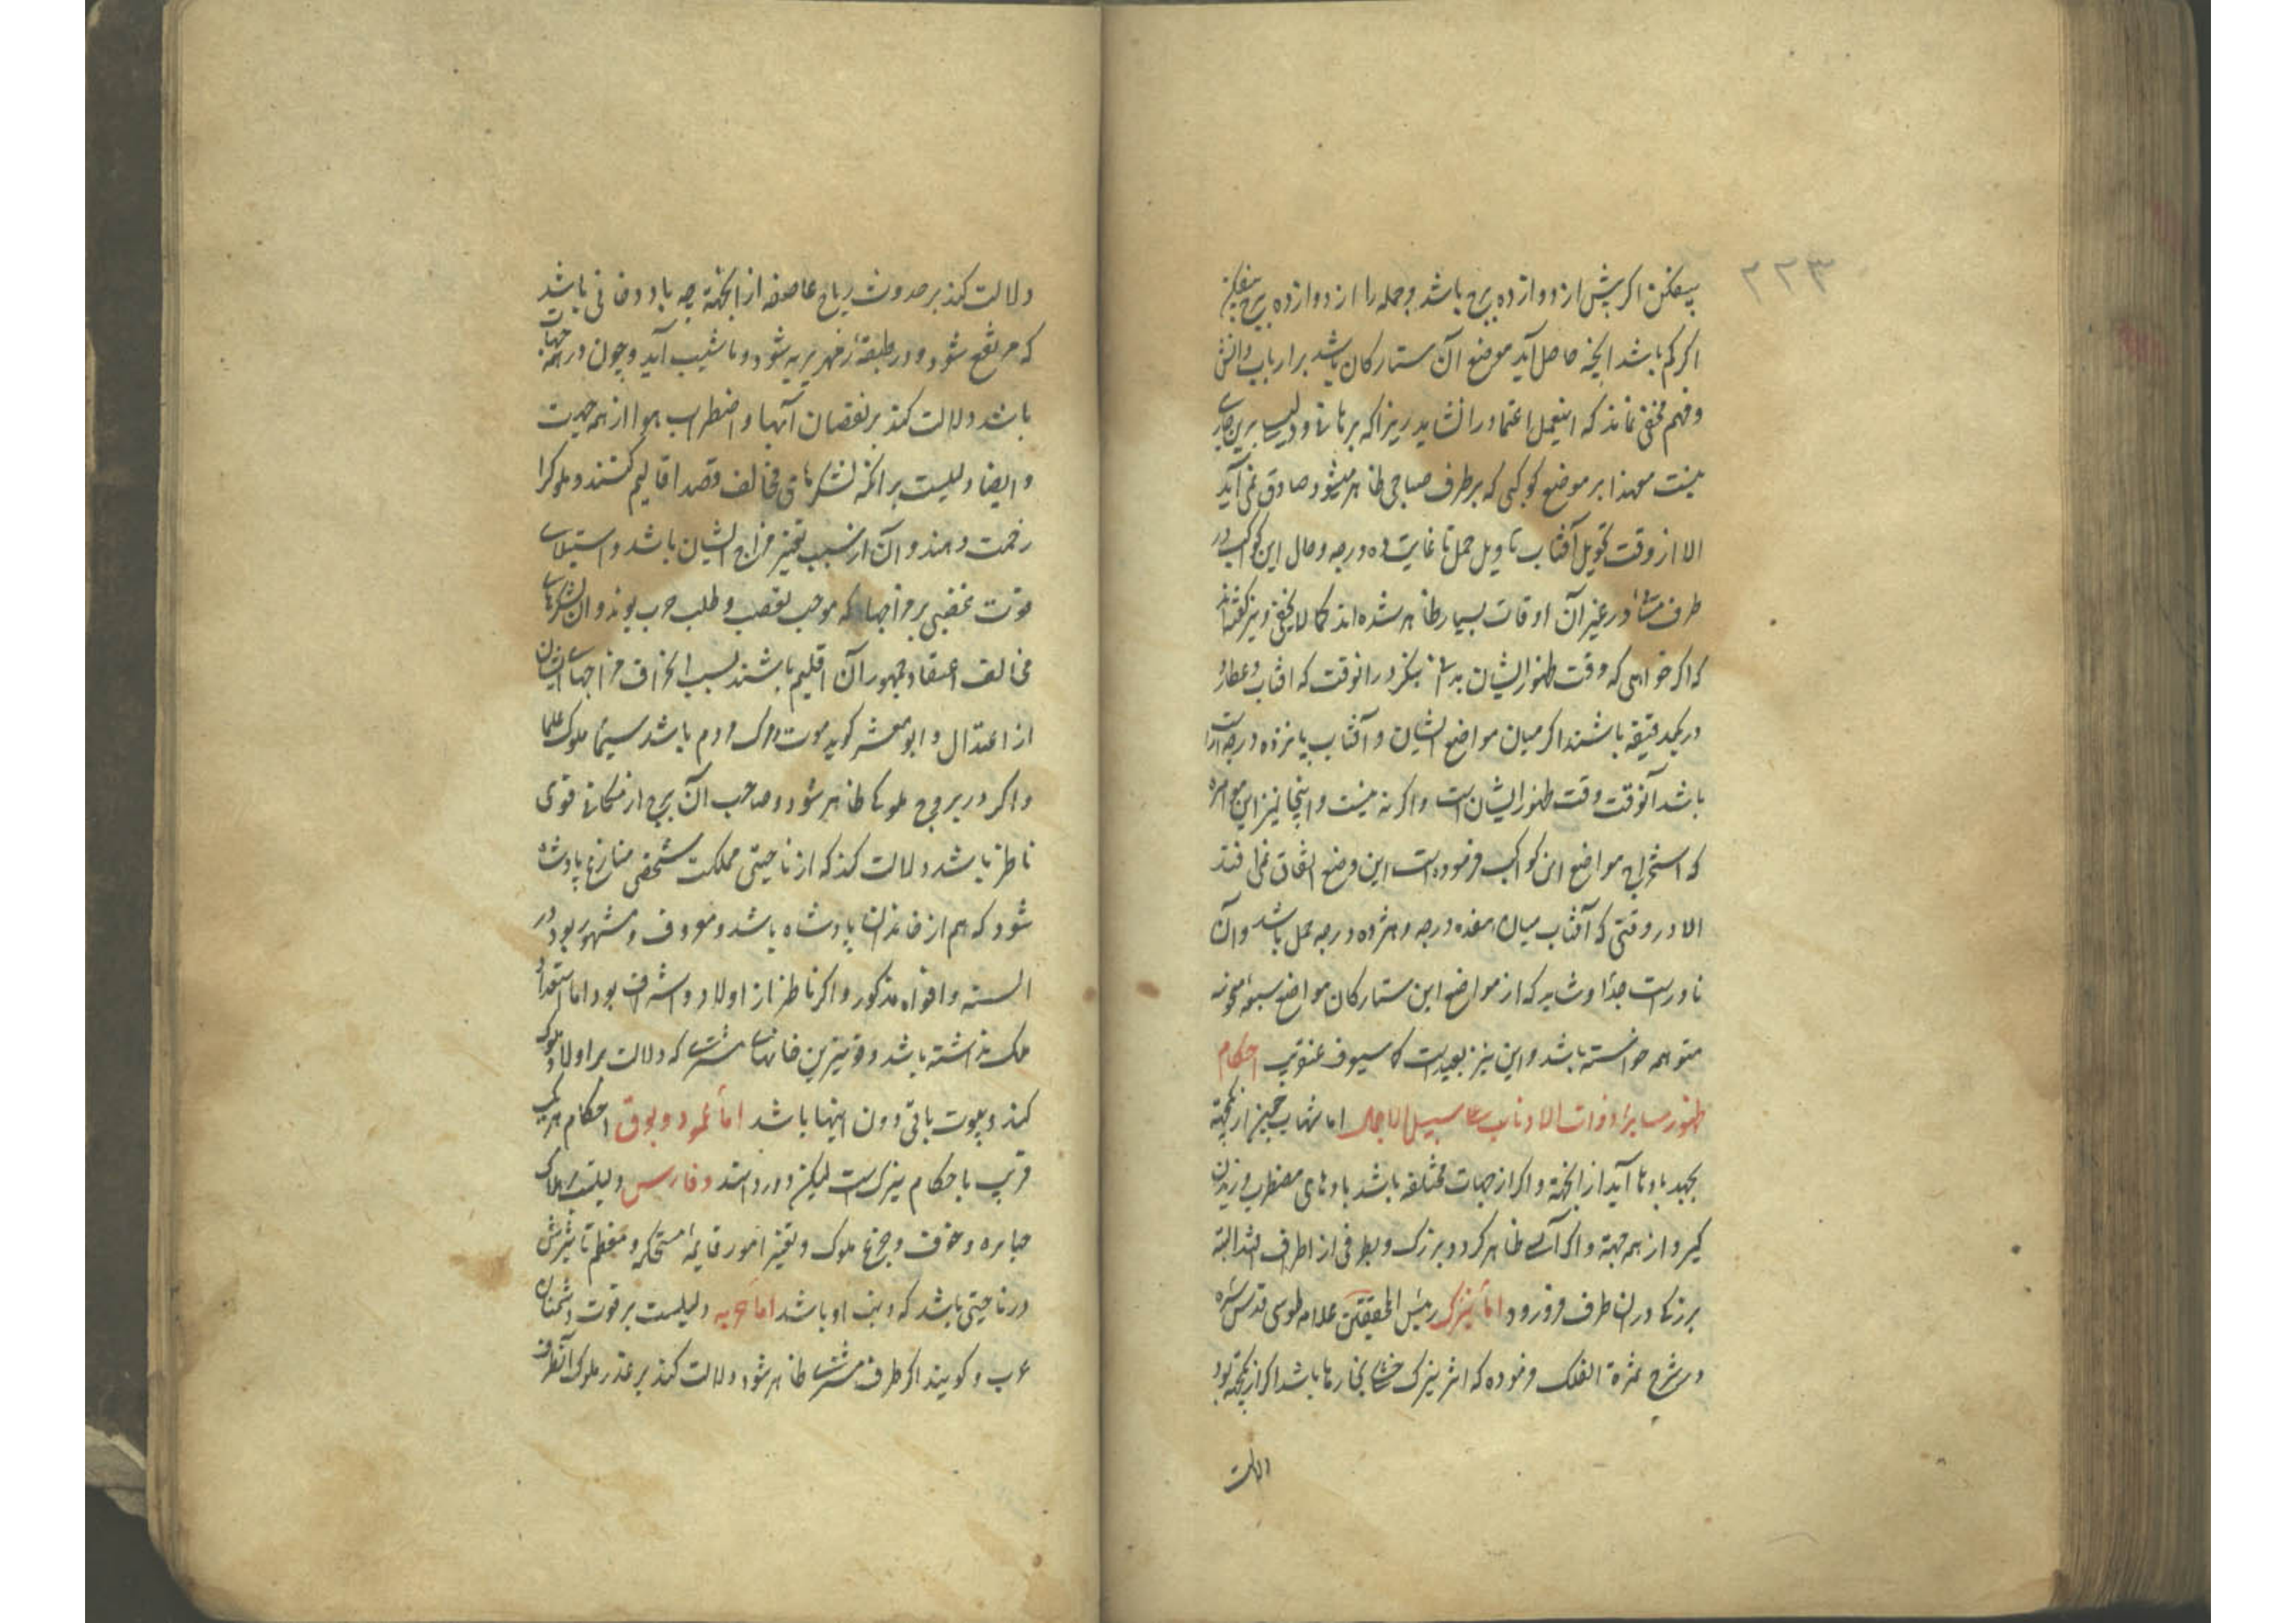 ۲۲۳
بیفکن اکر بیش از دوازده برج باشد و جمله را از دوازده برج بیفکن
اکر کم باشد انچه حاصل آید موضع آن ستارکان باشد بر ارباب دانش
و فهم مخفی نماند که اینعمل اعتماد را نشاید زیرا که برهانی و دلیلی برین جاری
نیست معهذا بر موضع کوکبی که بر طرف صباحی ظاهر میشود صادق نمی آید
الا از وقت تحویل آفتاب باول حمل تا غایت ده درجه و حال این کواکب در
طرف مشا در غیر آن اوقات بسیار ظاهر شده اند کما لا یخفی و نیز کفته اند
که اکر خواهی که وقت ظهور ایشان بدانی بنکر در انوقت که افتاب و عطارد
در یکدقیقه باشند اکر میان مواضع ایشان و آفتاب پانزده درجه
باشد آنوقت وقت ظهور ایشان است و اکر نه نیست و اینجا نیز این
که استخراج مواضع این کواکب فرموده است این وضع اتفاق نمی افتد
الا در وقتی که آفتاب میان هفده درجه و هژده درجه حمل باشد و آن
نادر است جدا و شاید که از مواضع این ستارکان مواضع سبعه
متوهمه خواسته باشد و این نیز بعید است احکام
ظهور سایر ذوات الاذناب علی سبیل الاجمال اما شهاب چون از یکجهة
بجهد بادها آید از انجهة و اکر از جهات مختلفه باشد بادهای مضطرب وزیدن
کیرد از همه جهة و اکر آتشی ظاهر کردد بزرک و بطرفی از اطراف افتد البته
بزرکی در ان طرف فرو رود اما نیزک رئیس المحققین علامه طوسی قدس سره
در شرح ثمرة الفلک فرموده که اثر نیزک خشکی بخارها باشد اکر از یکجهة بود
دلالت
دلالت کند بر حدوث ریاح عاصفه از انجهة چه باد دخانی باشد
که مرتفع شود و در طبقهٔ زمهریریه شود و با شیب آید و چون در همه جهات
باشد دلالت کند بر نقصان آبها و اضطراب هوا از همه جهت
و ایضا دلیلست بر انکه لشکرهای مخالف قصد اقالیم کنند و ملوک را
زحمت دهند و آن از سبب تغیر مزاج ایشان باشد و استیلای
قوت غضبی بر مزاجها که موجب تعصب و طلب حرب بود و آن لشکرهای
مخالف اعتقاد جمهور آن اقلیم باشند بسبب انحراف مزاجهای ایشان
از اعتدال و ابو معشر کوید موت و مرک مردم باشد سیما ملوک و علما
و اکر در بروج ملوکی ظاهر شود و صاحب آن برج از مکانی قوی
ناظر باشد دلالت کند که از ناحیتی مملکت شخصی منازع پادشاه
شود که هم از خاندان پادشاه باشد و معروف و مشهور بود در
السنه و افواه مذکور و اکر ناظر از اولاد و اشراف بود اما استعداد
ملک نداشته باشد و قویترین خانهای مشتری که دلالت بر اولاد ملوک
کند و بیوت باقی دون اینها باشد اما عمود و بوق احکام هر یک
قریب باحکام نیزک است لیکن دورو اسد و فارس دلیلست بر هلاک
جبابره و خوف و جزع ملوک و تغیر امور قایمهٔ مستحکمه و معظم تاثیرش
در ناحیتی باشد که ذنب او باشد اما حربه دلیلست بر قوت دشمنان
عرب و کویند اکر طرف مشرق ظاهر شود دلالت کند بر غدر ملوک آنطرف